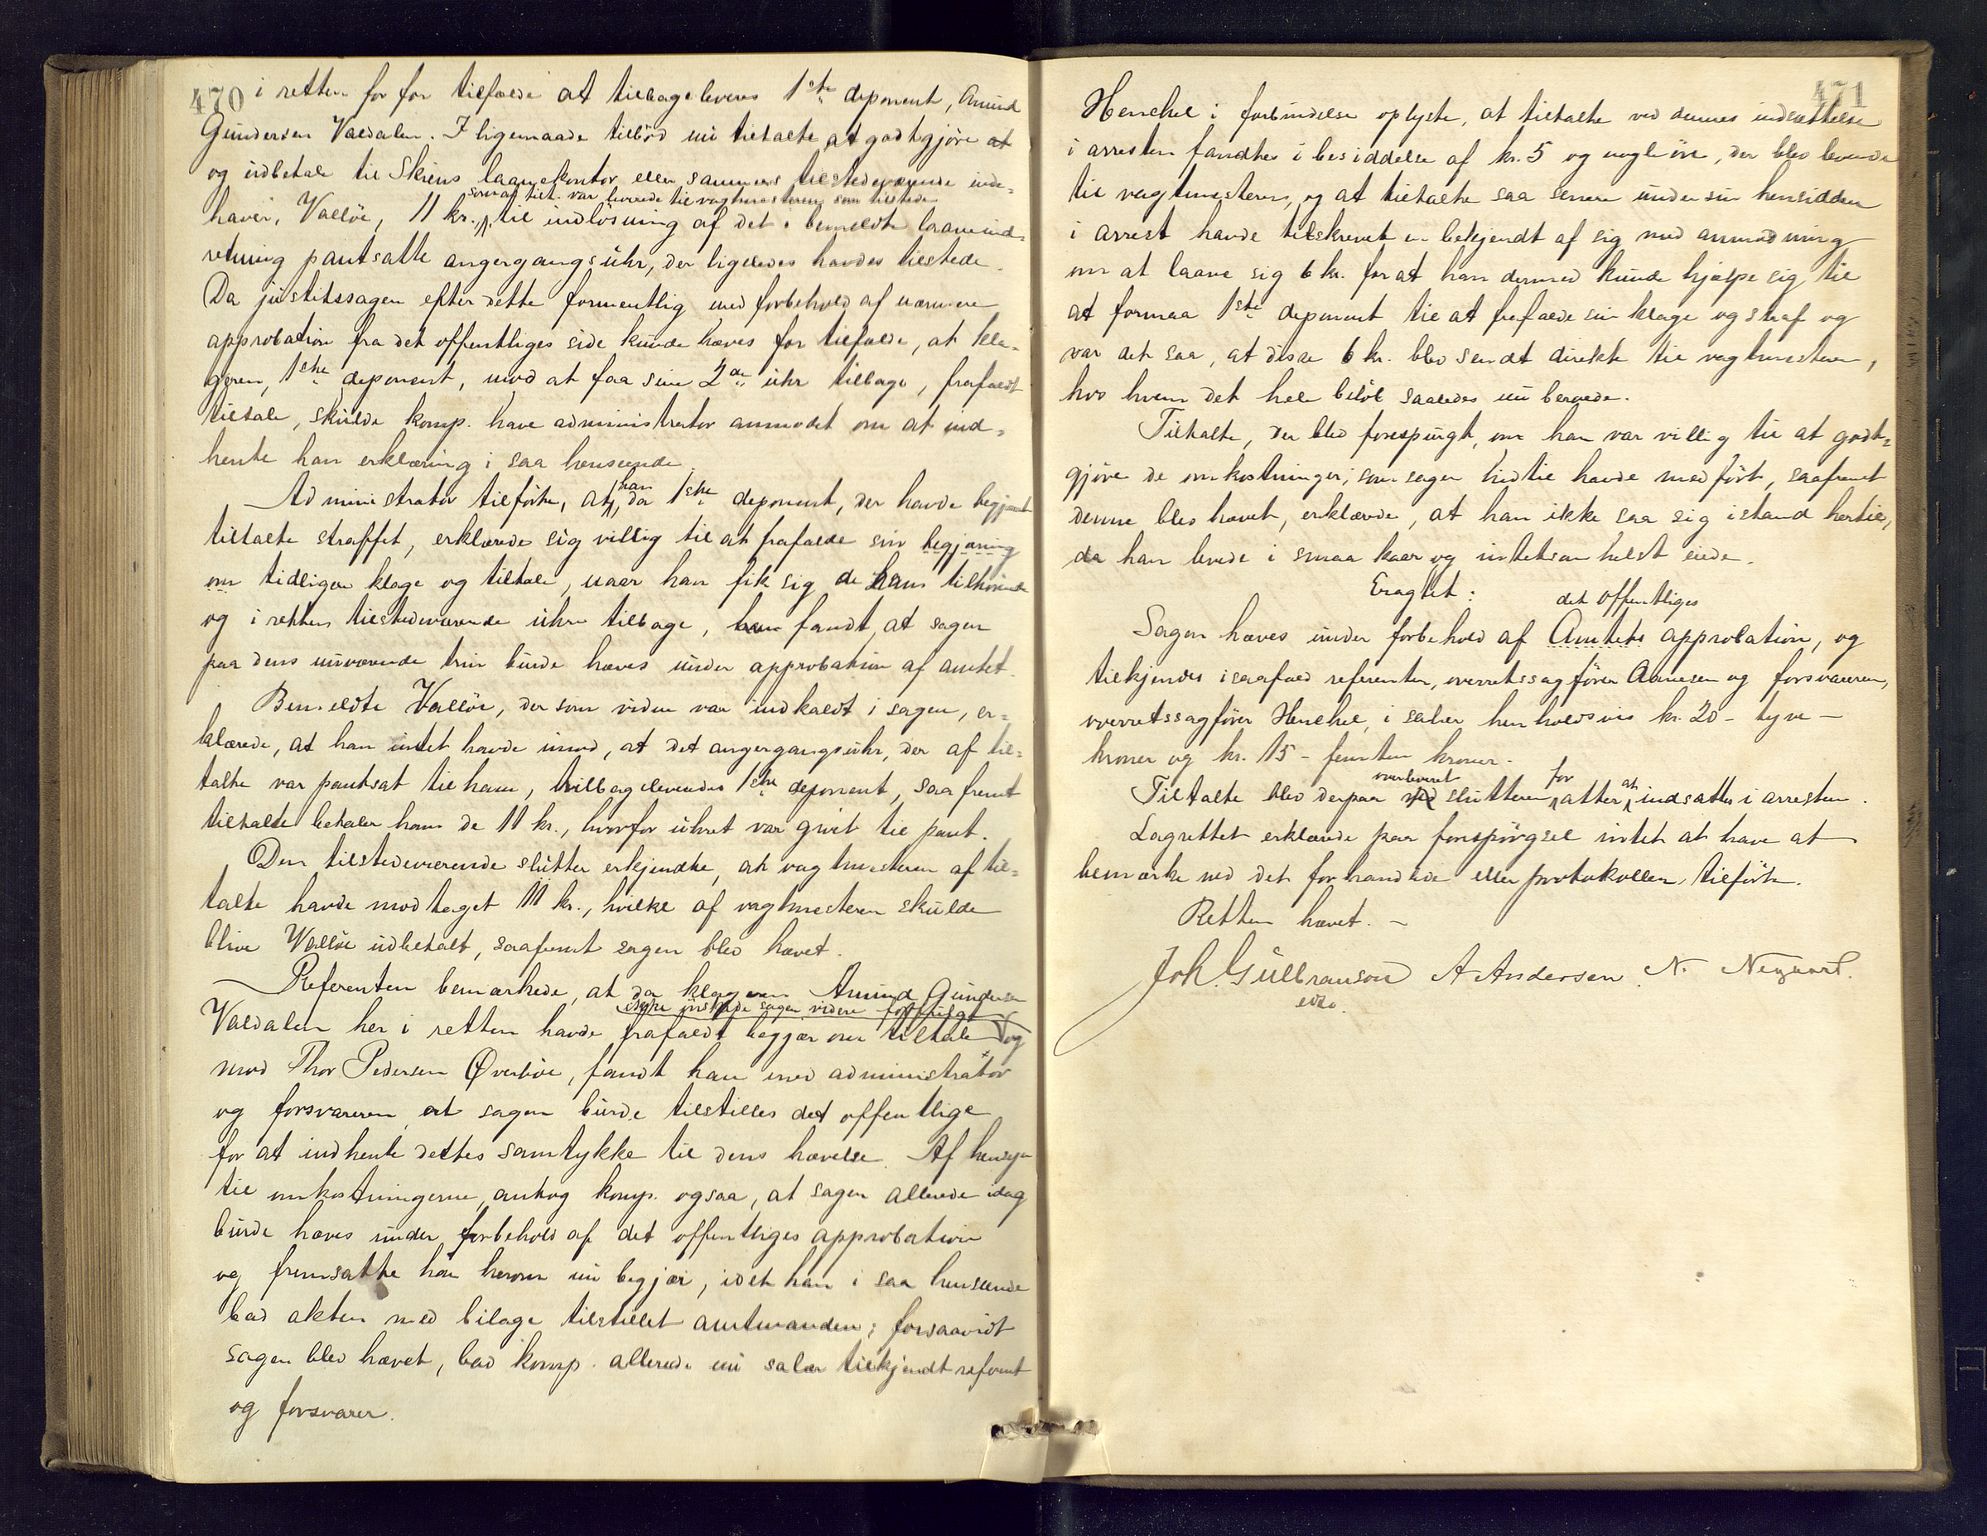 470
i retten for for tilfælde at tilbageleveres 1ste deponent, Amund
Gundersen Valdalen. I ligemaade tilbød nu tiltalte at godtgjøre at
og udbetale til Skiens laanekontor eller sammes tilstedeværende inde-
som af tilt. var leverede til vagtmesteren som tilstede
haver, Valløe, 11 kr. til indløsning af det i bemeldte laaneind-
retning pantsatte angergangsuhr, der ligeledes havdes tilstede.
Da justitssagen efter dette formentlig med forbehold af nærmere
approbation fra det offentliges side kunde hæves for tilfælde, at kla-
geren, 1ste deponent, mod at faa sine 2de uhr tilbage, frafaldt
tiltale, skulde komp. have administrator anmodet om at ind-
hente han erklæring i saa henseende.
Administrator tilførte, at han, da 1ste deponent, der havde begjæret
tiltalte straffet, erklærede sig villig til at frafalde sin begjæring
om tidligere klage og tiltale, naar han fik sig de ham tilhørende
og i retten tilstedeværende uhre tilbage, han fandt, at sagen
paa dens nuværende trin burde hæves under approbation af amtet.
Bemeldte Valløe, der som vidne var indkaldt i sagen, er-
klærede, at han intet havde imod, at det angergangsuhr, der af til-
talte var pantsat til ham, tilbageleveredes 1ste deponent, saafremt
tiltalte betaler ham de 11 kr., hvorfor uhret var givet til pant.
Den tilstedeværende slutter erkjendte, at vagtmesteren af til-
talte havde modtaget 11 kr., hvilke af vagtmesteren skulde
blive Valløe udbetalt, saafremt sagen blev hævet.
Referenten bemærkede, at da klageren Amund Gundersen
ikke ønskede sagen videre forfulgt
Valdalen her i retten havde frafaldt begjær om tiltale og
mod Thor Pedersen Øverbøe, fandt han med administrator
og forsvareren at sagen burde tilstilles det offentlige
for at indhente dettes samtykke til dens hævelse. Af hensyn
til omkostningerne antog komp. ogsaa, at sagen allerede idag
burde hæves under forbehold af det offentliges approbation
og fremsatte han herom nu begjær, idet han i saa henseende
bad akten med bilage tilstillet amtmanden; forsaavidt
sagen blev hævet, bad komp. allerede nu salær tilkjendt referent
og forsvarer.
471
Henchel i forbindelse oplyste, at tiltalte ved dennes indsættelse
i arresten fandtes i besiddelse af kr. 5 og nogle øre, der blev leverede
til vagtmesteren, og at tiltalte saa senere under sin hensidden
i arrest havde tilskrevet en bekjendt af sig med anmodning
om at laane sig 6 kr. for at han dermed kunde hjælpe sig til
at formaa 1ste deponent til at frafalde sin klage og straf og
var det saa, at disse 6 kr. blev sendt direkte til vagtmesteren,
hos hvem det hele beløb saaledes nu beroede.
Tiltalte, der blev forespurgt, om han var villig til at godt-
gjøre de omkostninger, som sagen hidtil havde medført, saafremt
denne blev hævet, erklærede, at han ikke saa sig istand hertil,
da han levede i smaa kaar og intetsomhelst eiede.
Eragtet:
det offentliges
Sagen hæves under forbehold af Amtets approbation, og
tilkjendes isaafald referenten, overretssagfører Aanesen og forsvareren,
overretssagfører Henchel, i salær henholdsvis kr. 20 - tyve -
kroner og kr. 15 - femten kroner.
overleveret for at
Tiltalte blev derpaa ved slutteren atter indsattes i arresten.
Lagrettet erklærede paa forespørgsel intet at have at
bemærke ved det forhandlede eller protokollen tilførte.
Retten hævet. -
Joh. Gulbranson A Andersen. N.
edv.